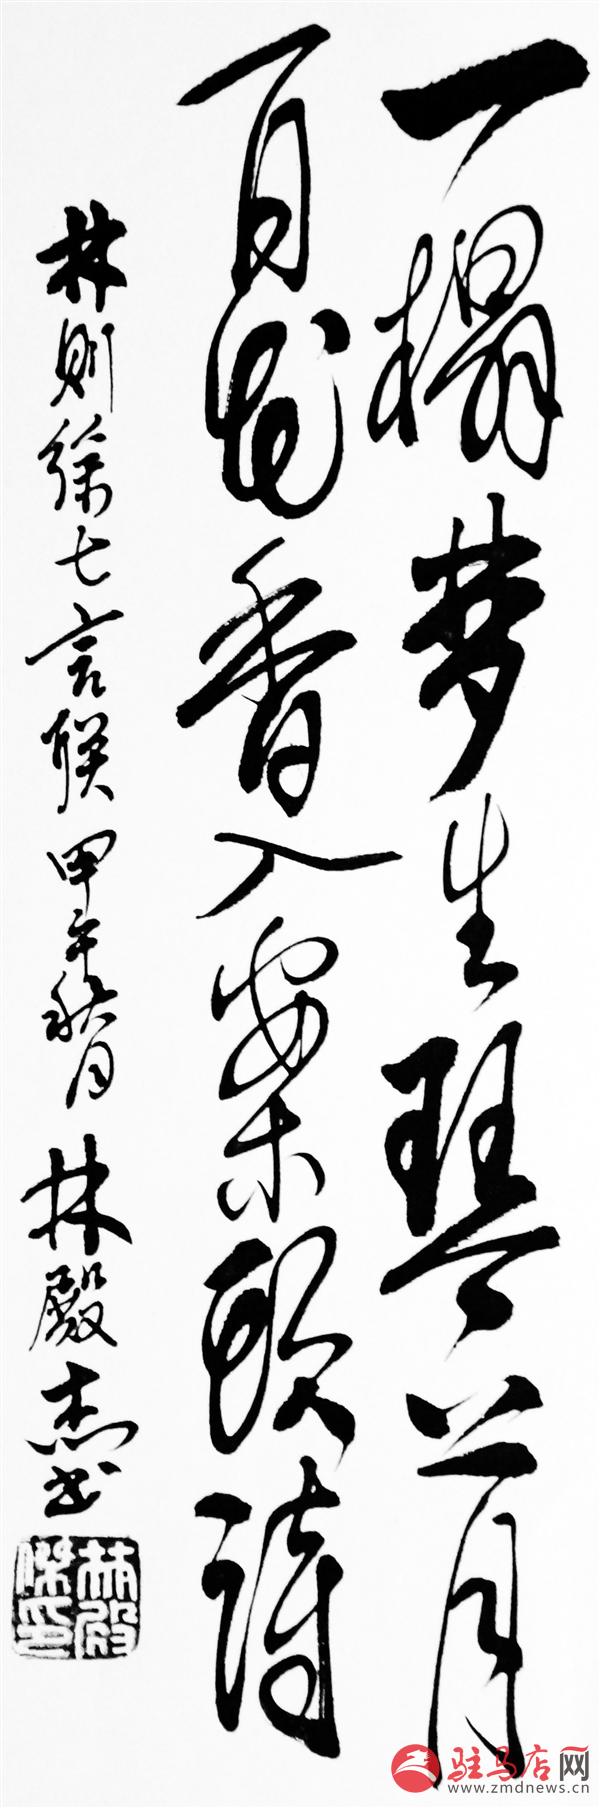 一榻梦生琴上月
百花香入案头诗
林则徐七言联 甲午秋月 林殿杰书
林殿傑印
驻马店网
www.zmdnews.cn